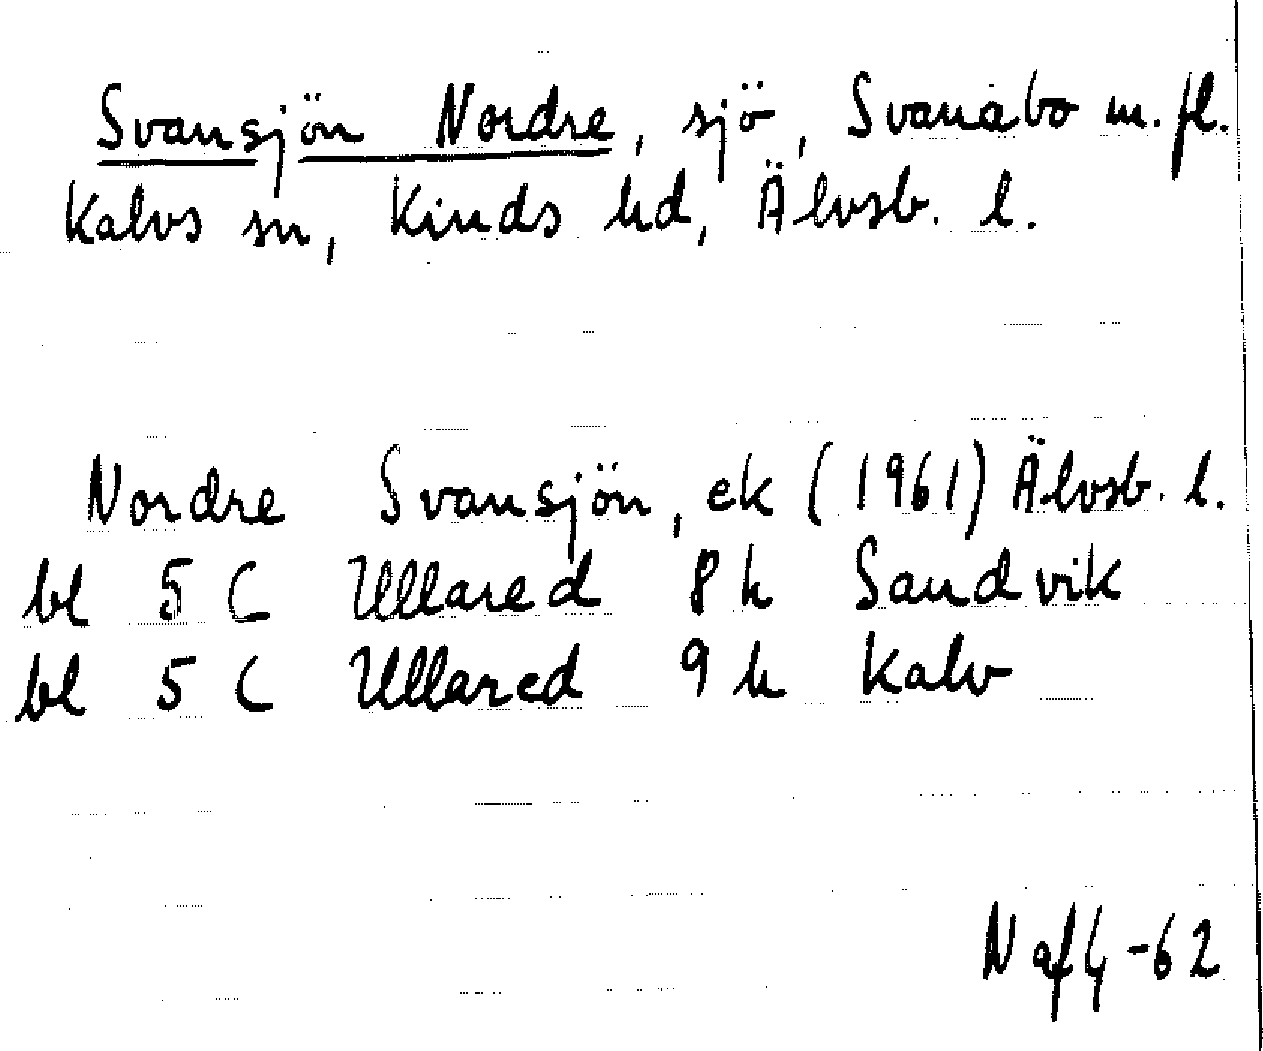 Svansjön Nordre, sjö, Svanabo m. fl.
Kalvs sn, Kinds hd, Älvsb. l.
Nordre Svansjön, ek (1961) Älvsb. l.
bl 5 C Ullared 8 h Sandvik
bl 5 C Ullared 9 h Kalv
N af G -62